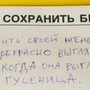 СОХРАНИТЬ Б
ИТЬ СВОЕЙ ЖЕНЕ
РЕКРАСНО ВЫГЛЯ
КОГДА ОНА ВЫГЛ
ГУСЕНИЦА.